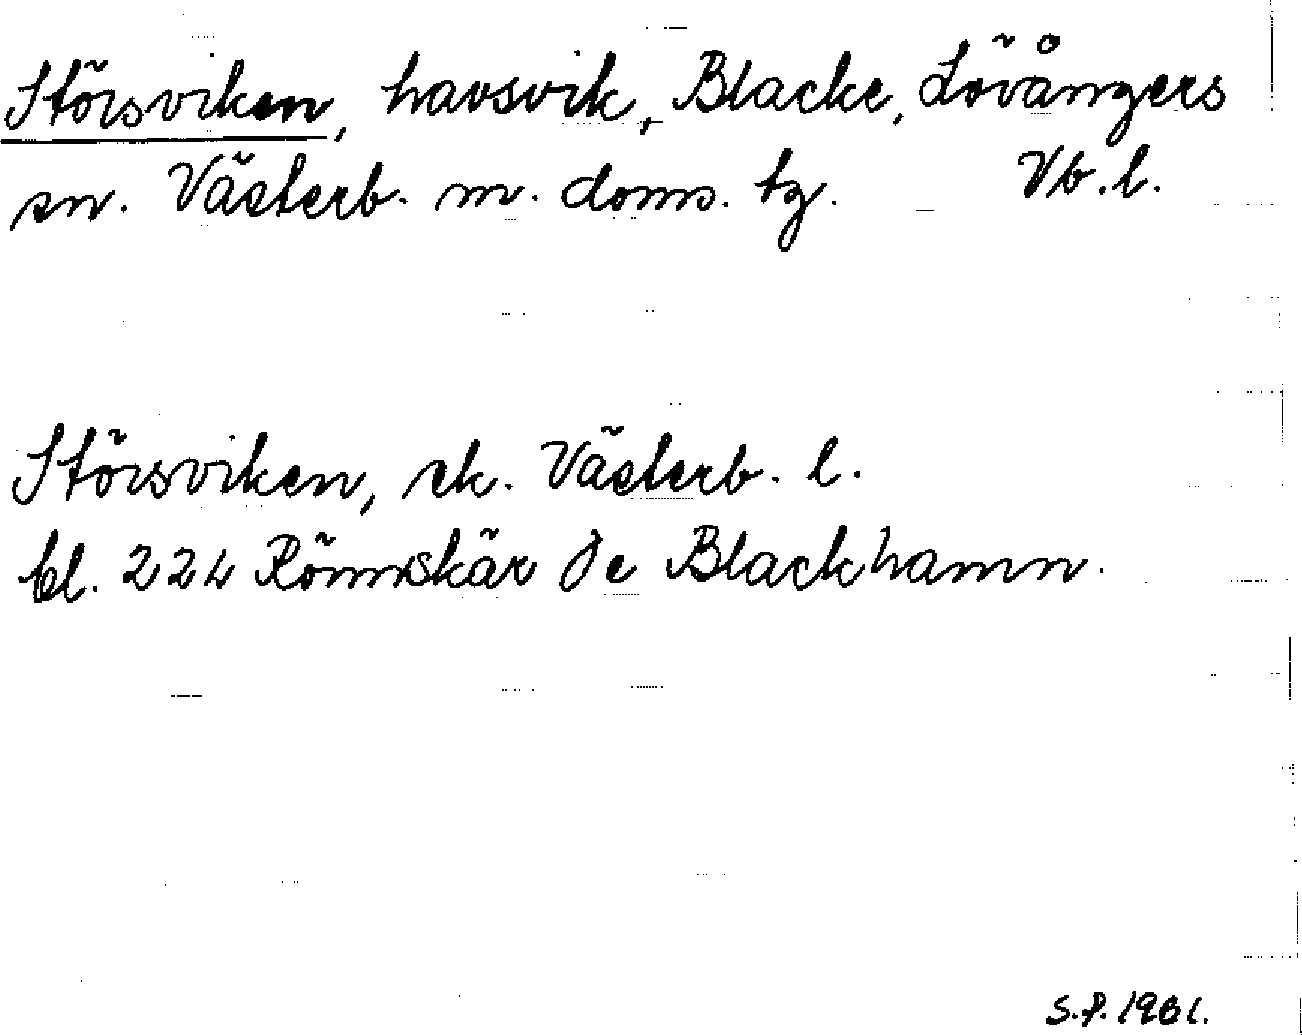 Störsviken, havsvik, Blacke, Lövångers
sn. Västerb. m. doms. tg. Vb. l.
Störsviken, ek. Västerb. l.
bl. 224 Rönnskär Je Blackhamn.
S.P. 1961.